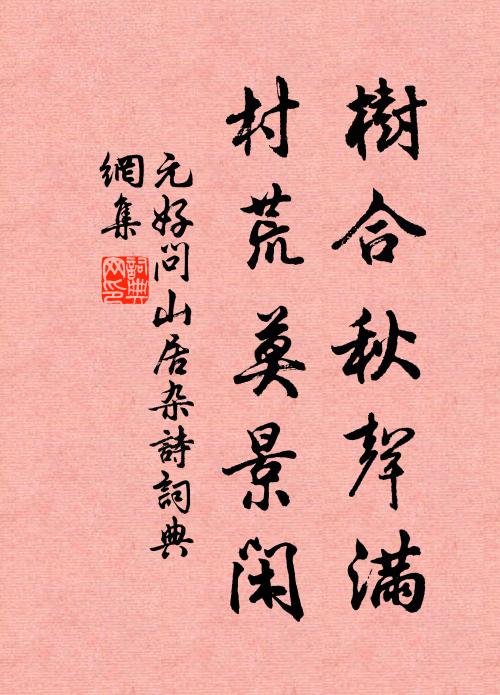 樹合秋聲滿
村荒莫景闲
元好问山居杂詩詞典
網集
詞典
网印